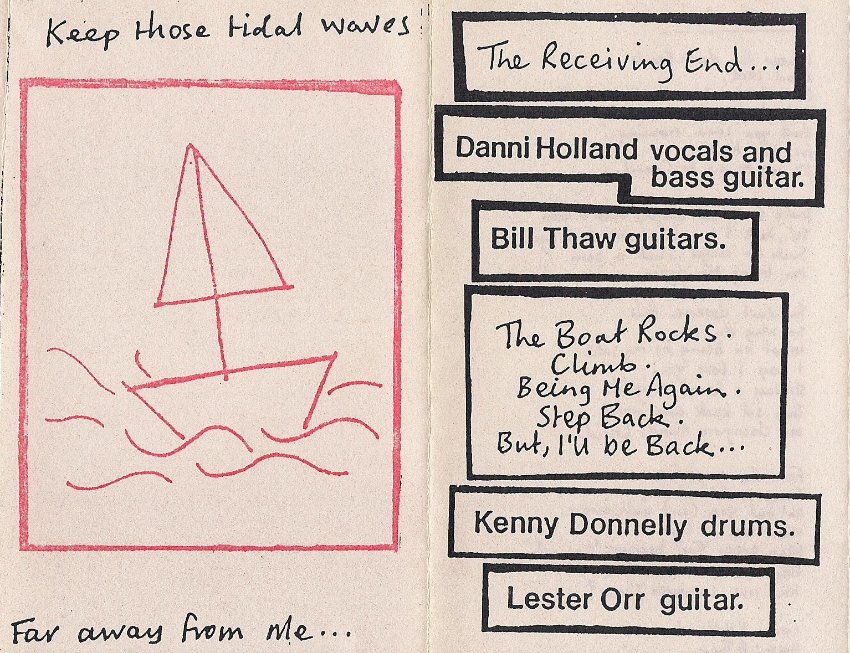 Keep those tidal waves
Far away from me...
The Receiving End...
Danni Holland vocals and
bass guitar.
Bill Thaw guitars.
The Boat Rocks.
Climb.
Being Me Again.
Step Back.
But, I'll be Back...
Kenny Donnelly drums.
Lester Orr guitar.